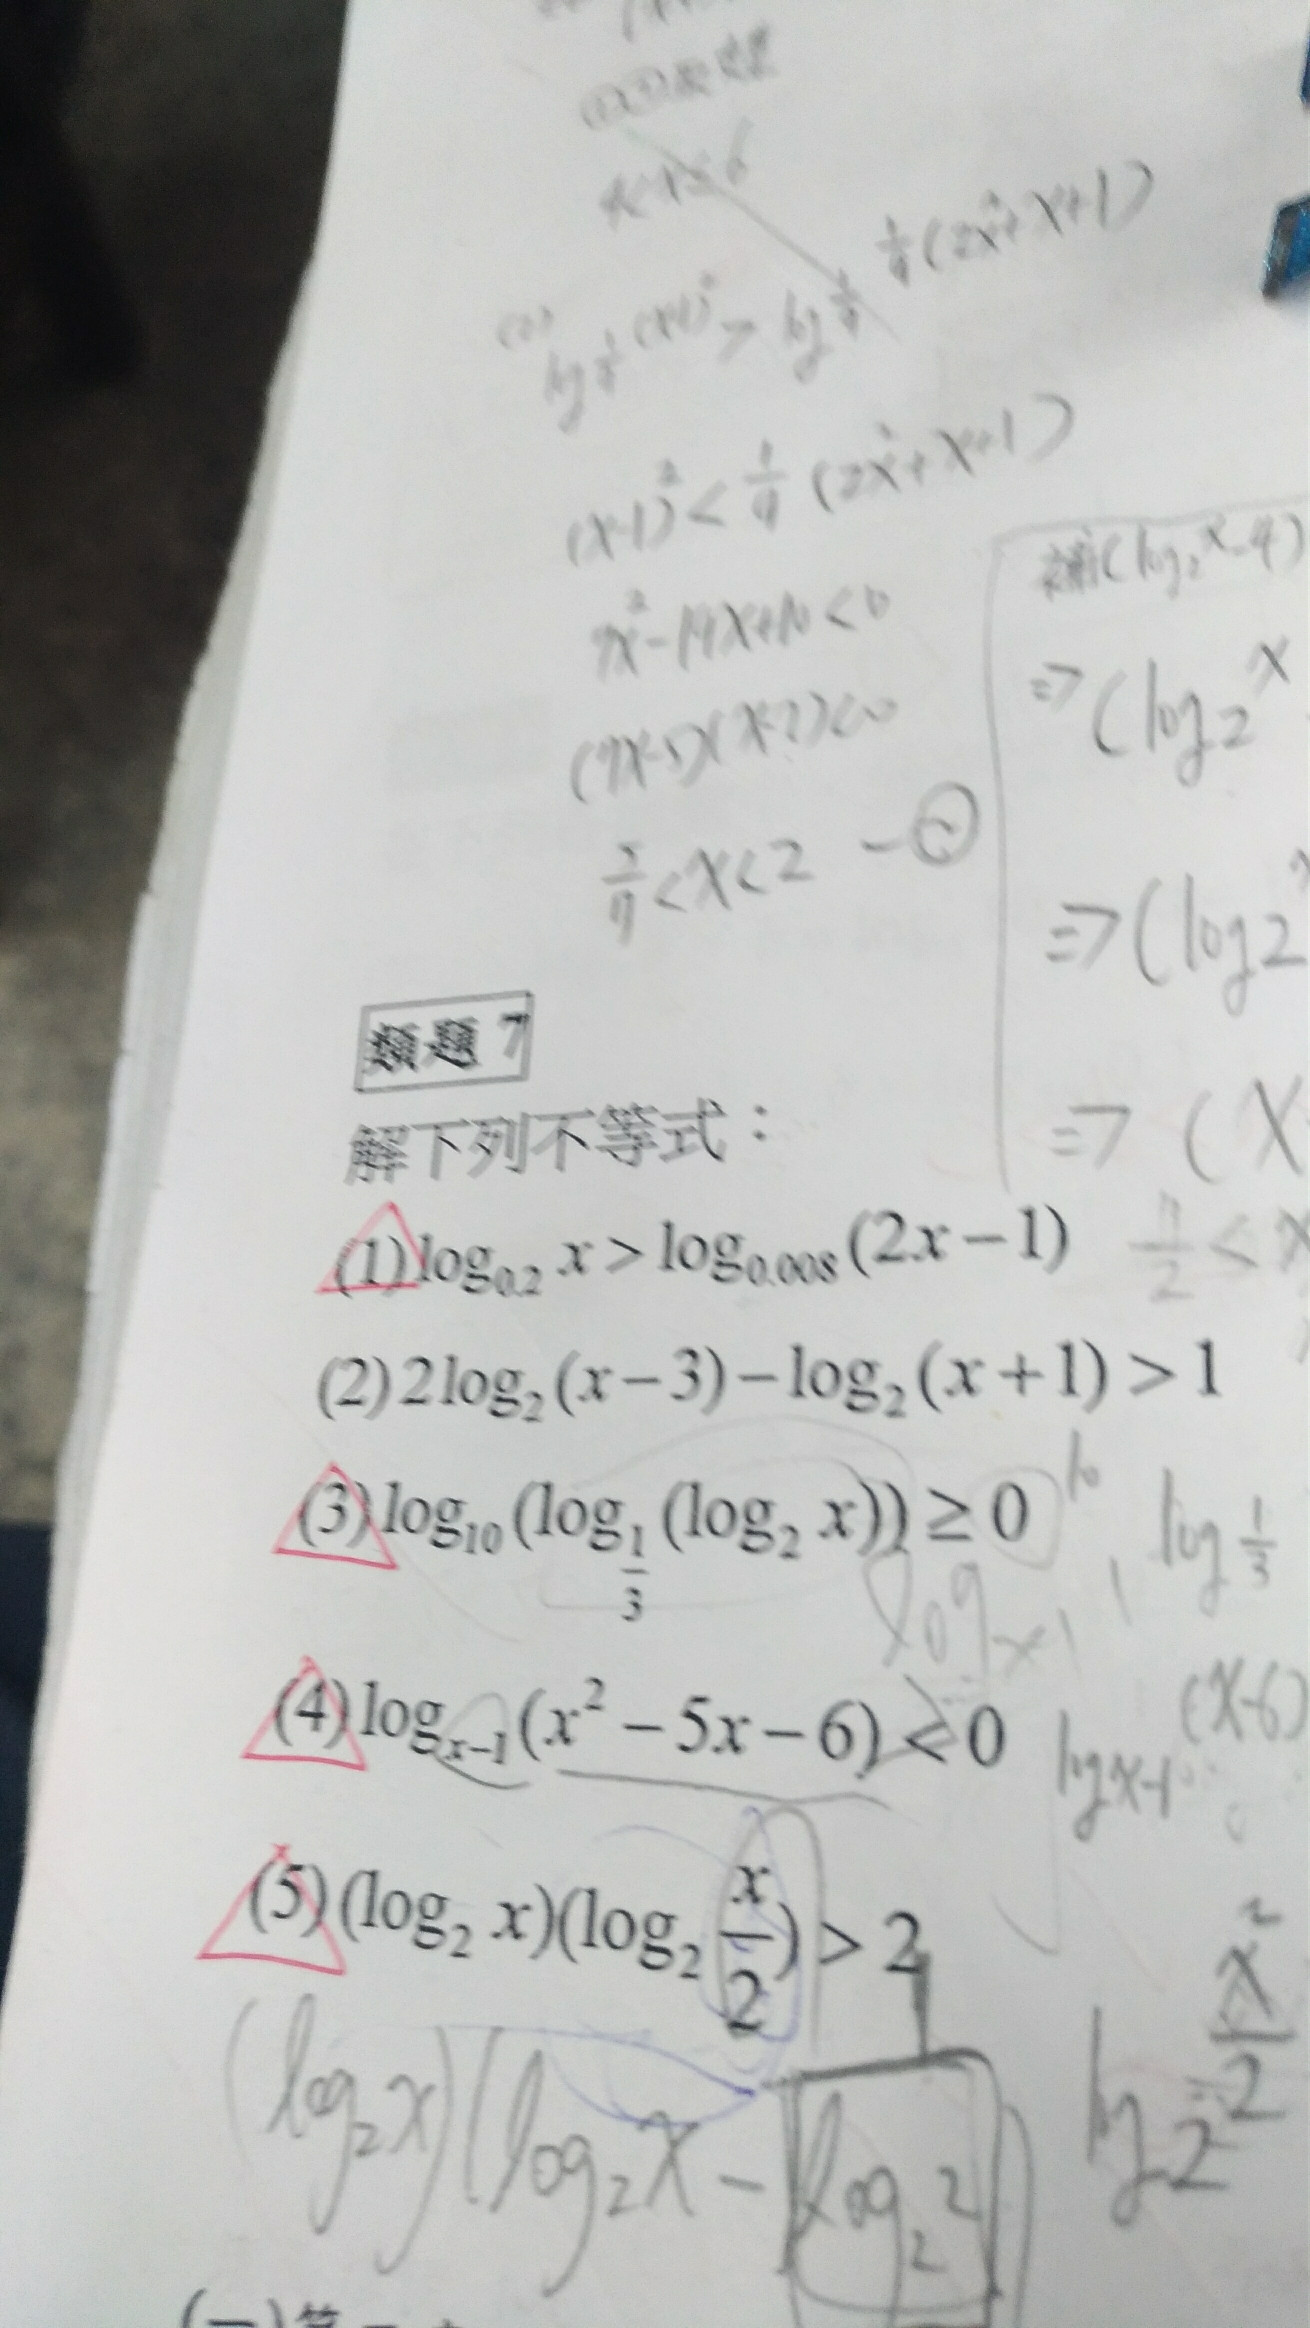 4<x≤6
(2)
log 1/9 (x-1)² > log 1/9 1/9(2x²+x+1)
(x-1)² < 1/9 (2x²+x+1)
7x²-19x+10<0
(7x-5)(x-2)<0
5/7<x<2 -②
補(log₂x-4)
⇒(log₂x
⇒(log₂
⇒(x
類題 7
解下列不等式：
(1) log₀.₂ x > log₀.₀₀₈ (2x-1)
(2) 2log₂(x-3)-log₂(x+1)>1
(3) log₁₀(log_{1/3}(log₂ x)) ≥ 0
10
log 1/3
1
(4) log_{x-1}(x²-5x-6)<0
log x-1 (x-6)
(5) (log₂ x)(log₂ x/2) > 2
(log₂x)(log₂x - log₂2)